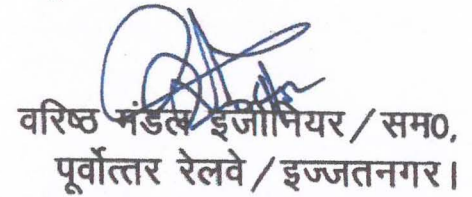 वरिष्ठ मंडल इंजीनियर / सम0,
पूर्वोत्तर रेलवे / इज्जतनगर।